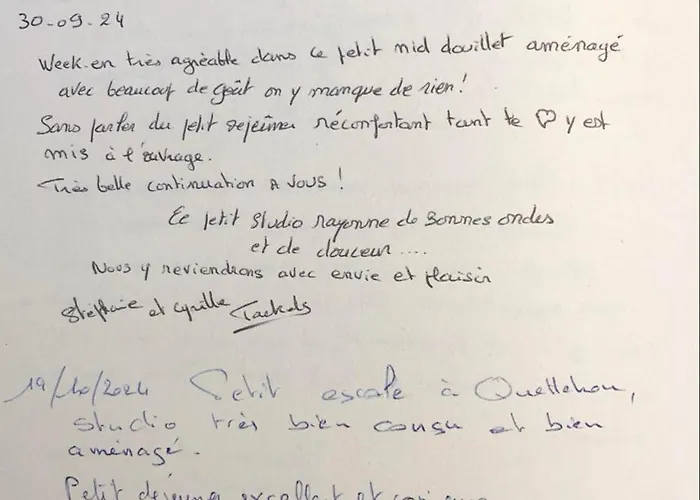 30-09-24
Week-en très agréable dans ce petit nid douillet aménagé
avec beaucoup de goût on y manque de rien !
Sans parler du petit dejeûner réconfortant tant le ♡ y est
mis à l'ouvrage.
Très belle continuation A vous !
Ce petit studio rayonne de Bonnes ondes
et de douceur ....
Nous y reviendrons avec envie et plaisir
Stéphanie et Cyrille
19/10/2024 Petit escale à Quettehou,
studio très bien conçu et bien
aménagé.
Petit déjeuner excellent et